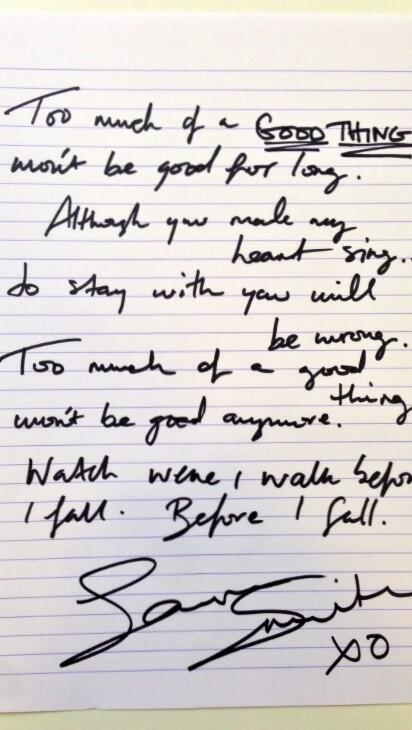 Too much of a GOOD THING
won't be good for long.
Although you made my
heart sing..
to stay with you will
be wrong.
Too much of a good
thing
won't be good anymore.
Watch were I walk before
I fall. Before I fall.
Sam Smith
XO